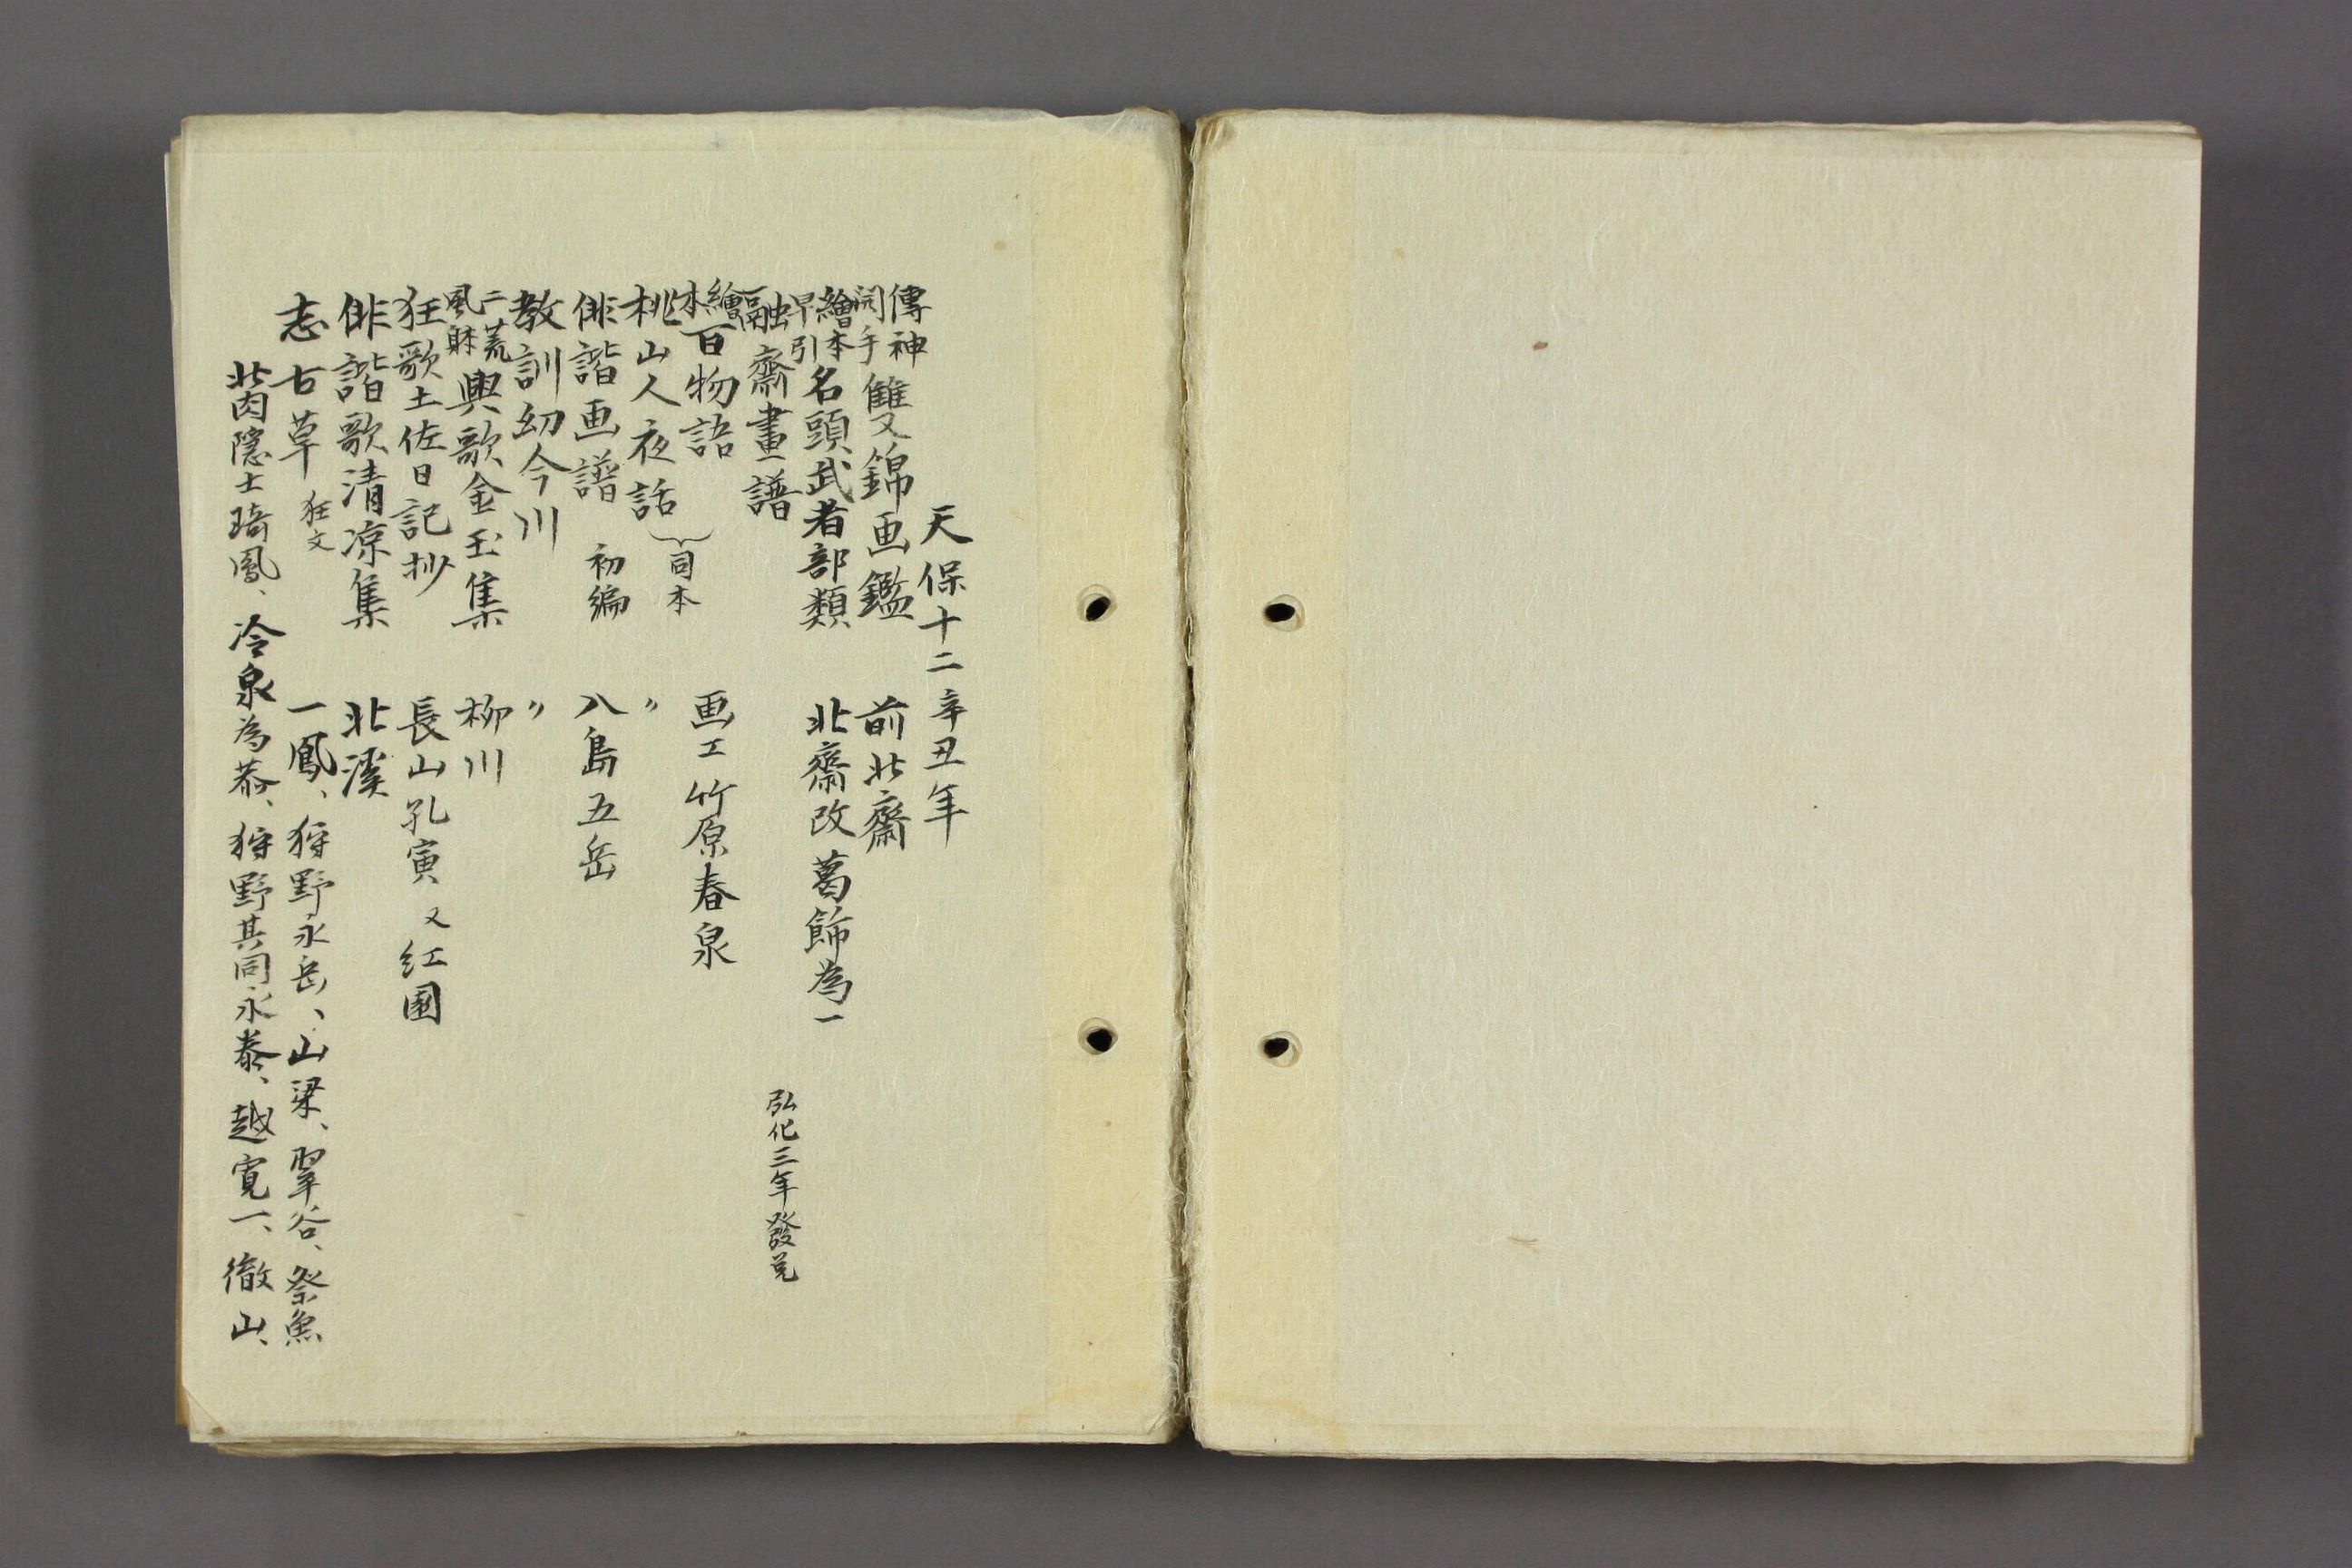 天保十二辛丑年
傳神開手 雙錦画鑑 前北齋
繪本早引 名頭武者部類 北齋改葛飾為一
融齋畫譜 弘化三年發兌
繪本百物語 画工竹原春泉
桃山人夜話 同本 〃
俳諧画譜 初編 八島五岳
教訓幼今川 〃
二荒風躰 興歌金玉集 柳川
狂歌土佐日記抄 長山孔寅 又紅園
俳諧歌清凉集 北溪
志古草 狂文 一鳳、狩野永岳、山梁、翠谷、祭魚
茵隠士琦鳳、冷泉為恭、狩野其同永泰、越寛一、徹山、